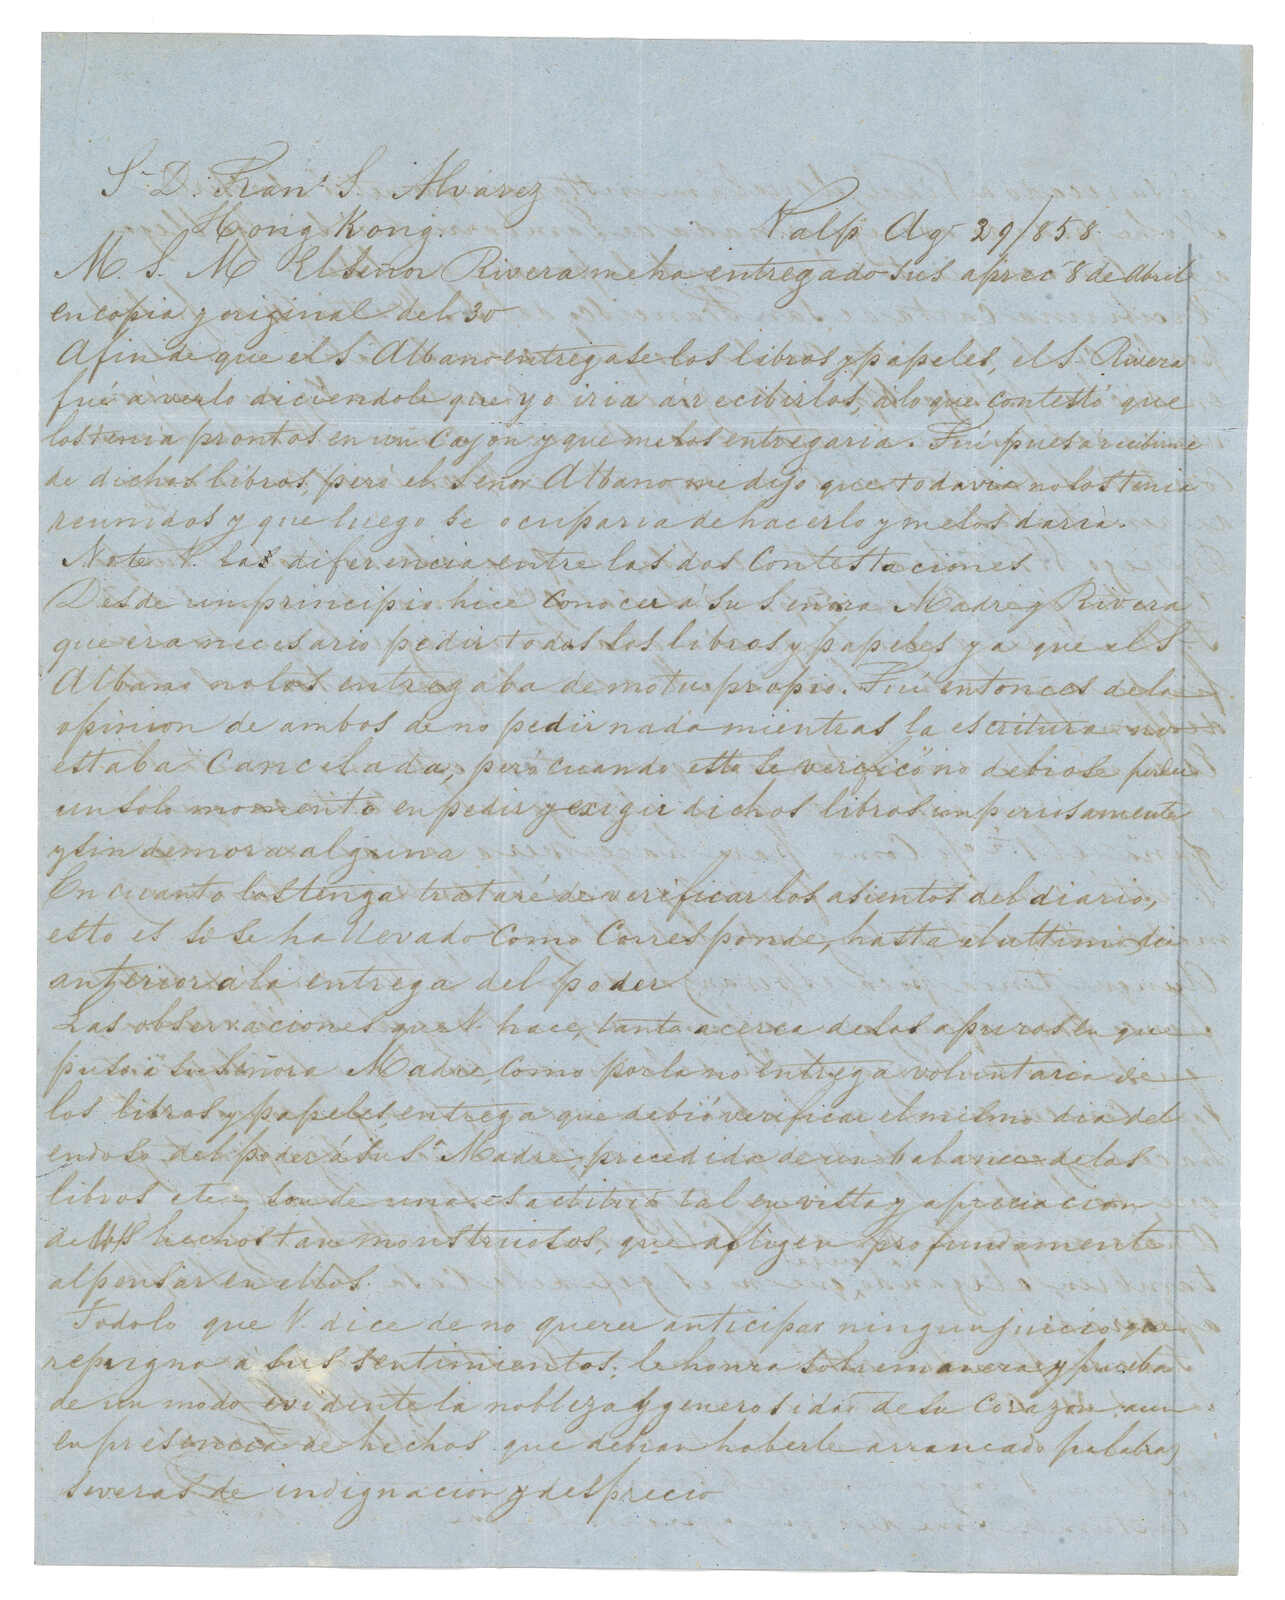 Sr D. Franº S. Alvarez
Hong Kong. Valp Agº 29/858.
M. S. M El Señor Rivera me ha entregado sus aprec.s 8 de Abril
en copia y original del 30
Afin de que el Sr Albano entregase los libros y papeles, el Sr Rivera
fué á verlo diciendole que yo iria á recibirlos, á lo que contestó que
los tenia prontos en un Cajon y que me los entregaria. Fui pues a recibirme
de dichos libros, pero el Señor Albano me dijo que todavia no los tenia
reunidos y que luego se ocuparia de hacerlo y me los daria.
Note V. las diferencia entre las dos Contestaciones
Desde un principio hice conocer á su Señora Madre y Rivera
que era necesario pedir todos los libros y papeles ya que el Sr
Albano no los entregaba de motu propio. Fui entonces de la
opinion de ambos de no pedir nada mientras la escritura no
estaba Cancelada, pero cuando esto se verificó no debiose perder
un solo momento en pedir y exigir dichos libros imperiosamente
y sin demora alguna
En cuanto los tenga trataré de verificar los asientos del diario,
esto es si se ha llevado como Corresponde, hasta el ultimo dia
anterior a la entrega del poder
Las observaciones que V. hace, tanto acerca de los apuros en que
puso á su Señora Madre, como por la no entrega voluntaria de
los libros y papeles, entrega que debió verificar el mismo dia del
endoso del poder á su Sra Madre, precedida de un balance de los
libros etca son de una esactitud tal en vista y apreciacion
de los hechos tan monstruosos, que afligen profundamente
al pensar en ellos.
Todo lo que V. dice de no querer anticipar ningun juicio que
repugna a sus sentimientos, le honra sobremanera y prueba
de un modo evidente la nobleza y generosidad de su Corazón aun
en presencia de hechos que debian haberle arrancado palabras
severas de indignacion y desprecio